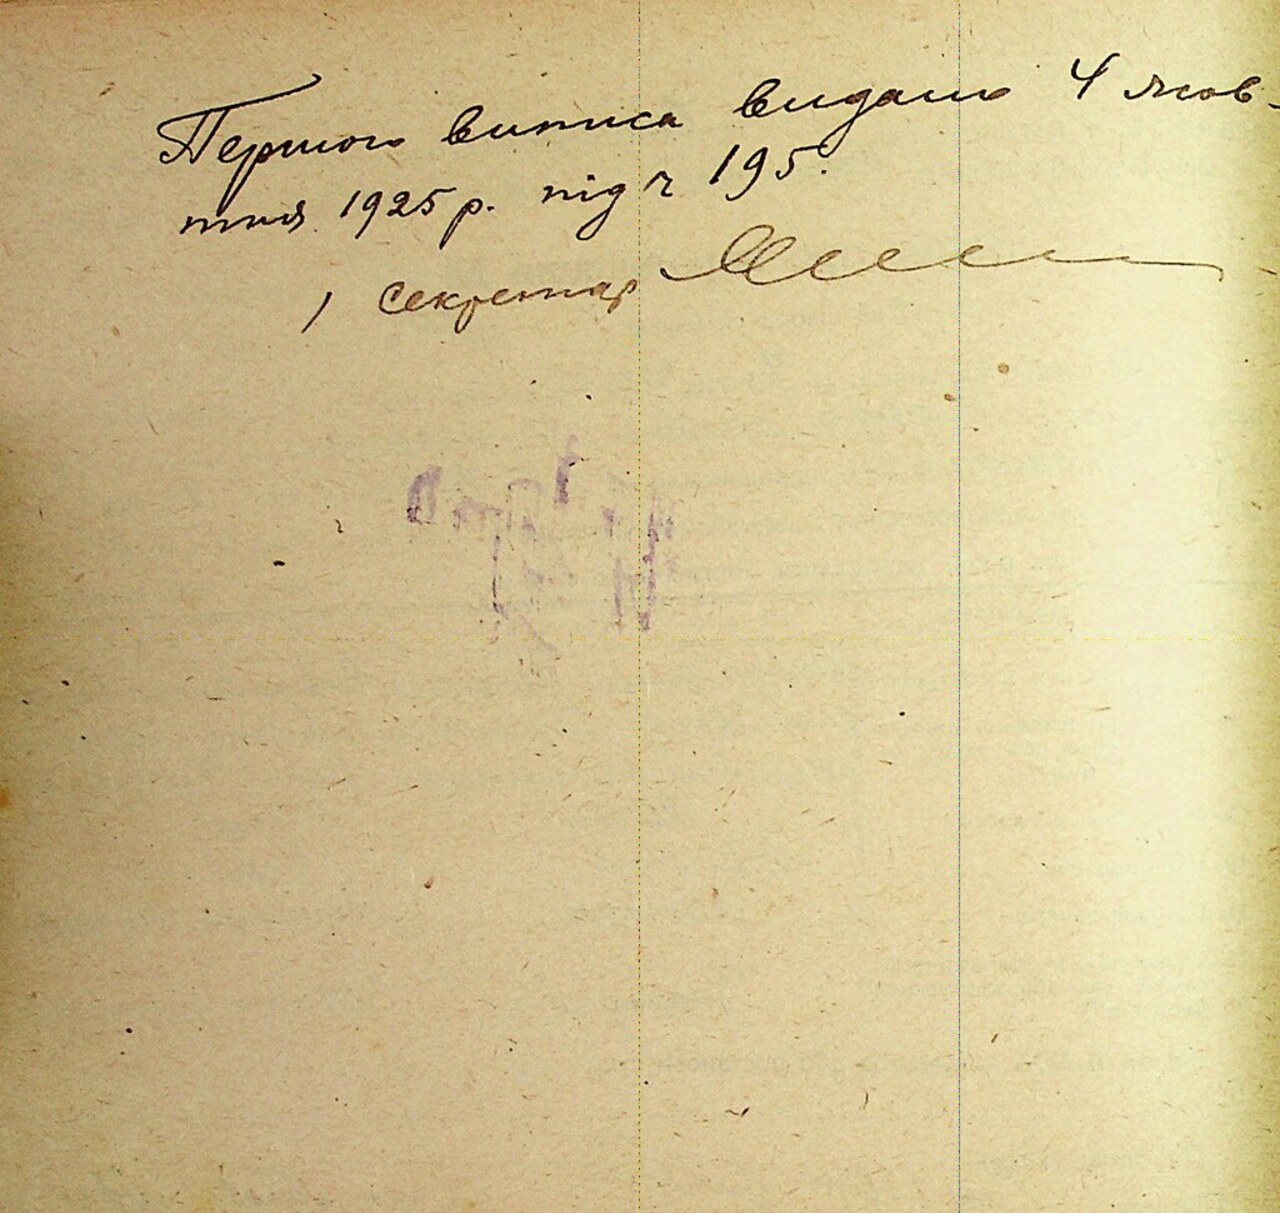 Першого виписа видано 4 жов-
тня 1925 р. під ч 195.
Секретар